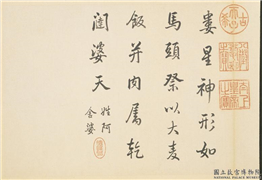 婁星神形如
馬頭祭以大麦
飯并肉属乾
闥婆天 姓阿
含婆
國立故宮博物院
NATIONAL PALACE MUSEUM